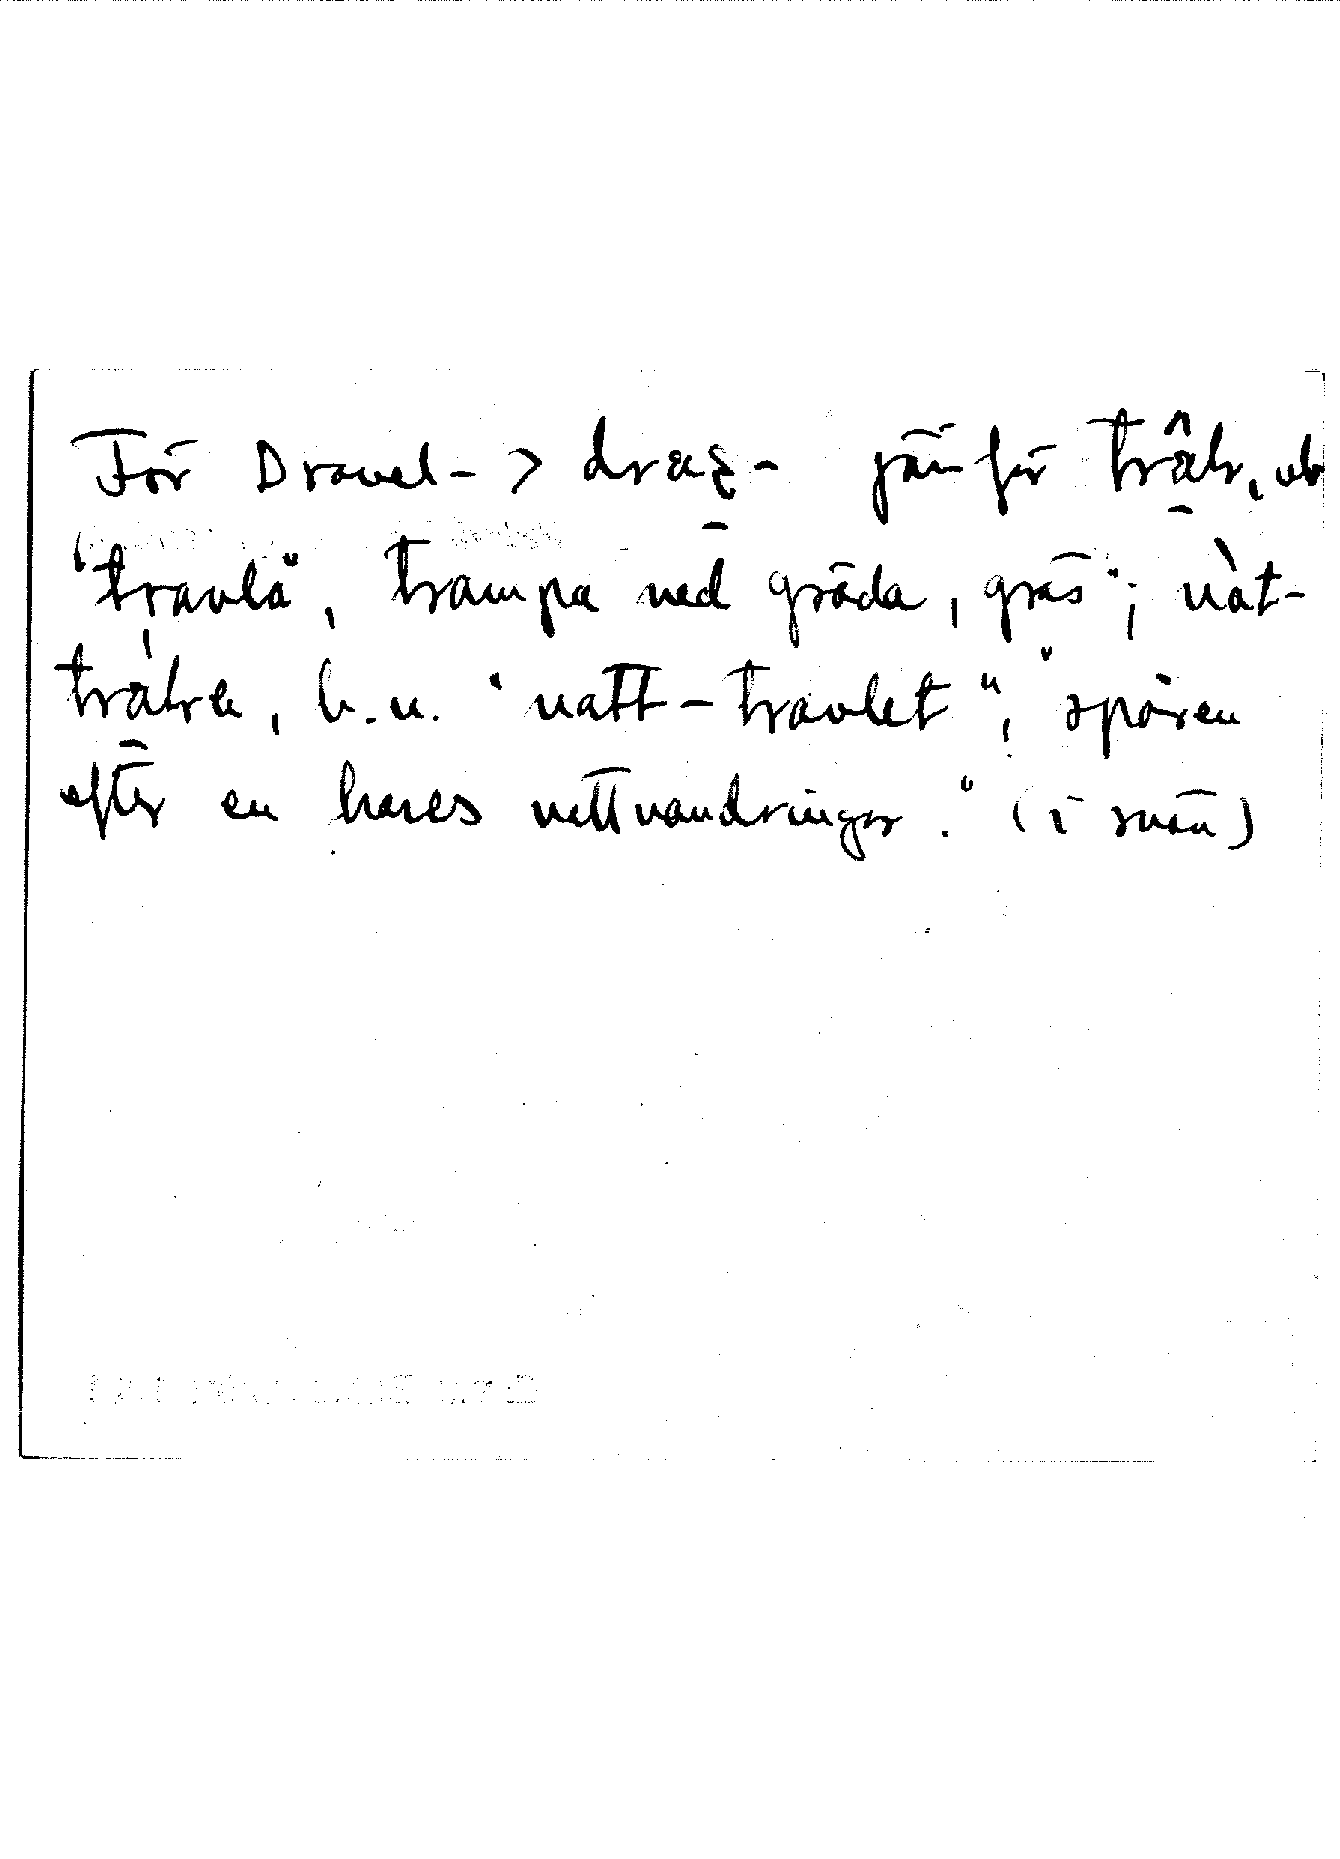 För Dravel- > draʒ- jämför trâlr, vb
"travla", trampa ned gröda, gräs"; nàt-
tràlre, n. "natt-travlet", "spåren
efter en hares nattvandringar." (i snön)